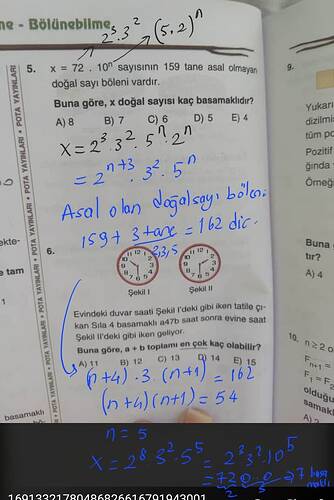 ne - Bölünebilme
2³·3² (5·2)ⁿ
5. x = 72 . 10ⁿ sayısının 159 tane asal olmayan
doğal sayı böleni vardır.
Buna göre, x doğal sayısı kaç basamaklıdır?
A) 8 B) 7 C) 6 D) 5 E) 4
x = 2³ · 3² · 5ⁿ · 2ⁿ
= 2ⁿ⁺³ · 3² · 5ⁿ
Asal olan doğal sayı böleni
159 + 3 tane = 162 dir.
2,3,5
6.
Şekil I Şekil II
Evindeki duvar saati Şekil I'deki gibi iken tatile çı-
kan Sıla 4 basamaklı a47b saat sonra evine saat
Şekil II'deki gibi iken geliyor.
Buna göre, a + b toplamı en çok kaç olabilir?
A) 11 B) 12 C) 13 D) 14 E) 15
(n+4) · 3 · (n+1) = 162
(n+4)(n+1) = 54
n = 5
x = 2⁸ · 3² · 5⁵ = 2³·3²·10⁵
= 7200000 → 7 basa
POTA YAYINLARI • POTA YAYINLARI • POTA YAYINLARI • POTA YAYINLARI
ekte-
e tam
1
basamaklı
9.
Yukarı
dizilmi
tüm po
Pozitif
ğında
Örneğ
Buna
A) 4
10. n ≥ 2
Fₙ₊₁ =
F₁ = F₂
olduğu
samak